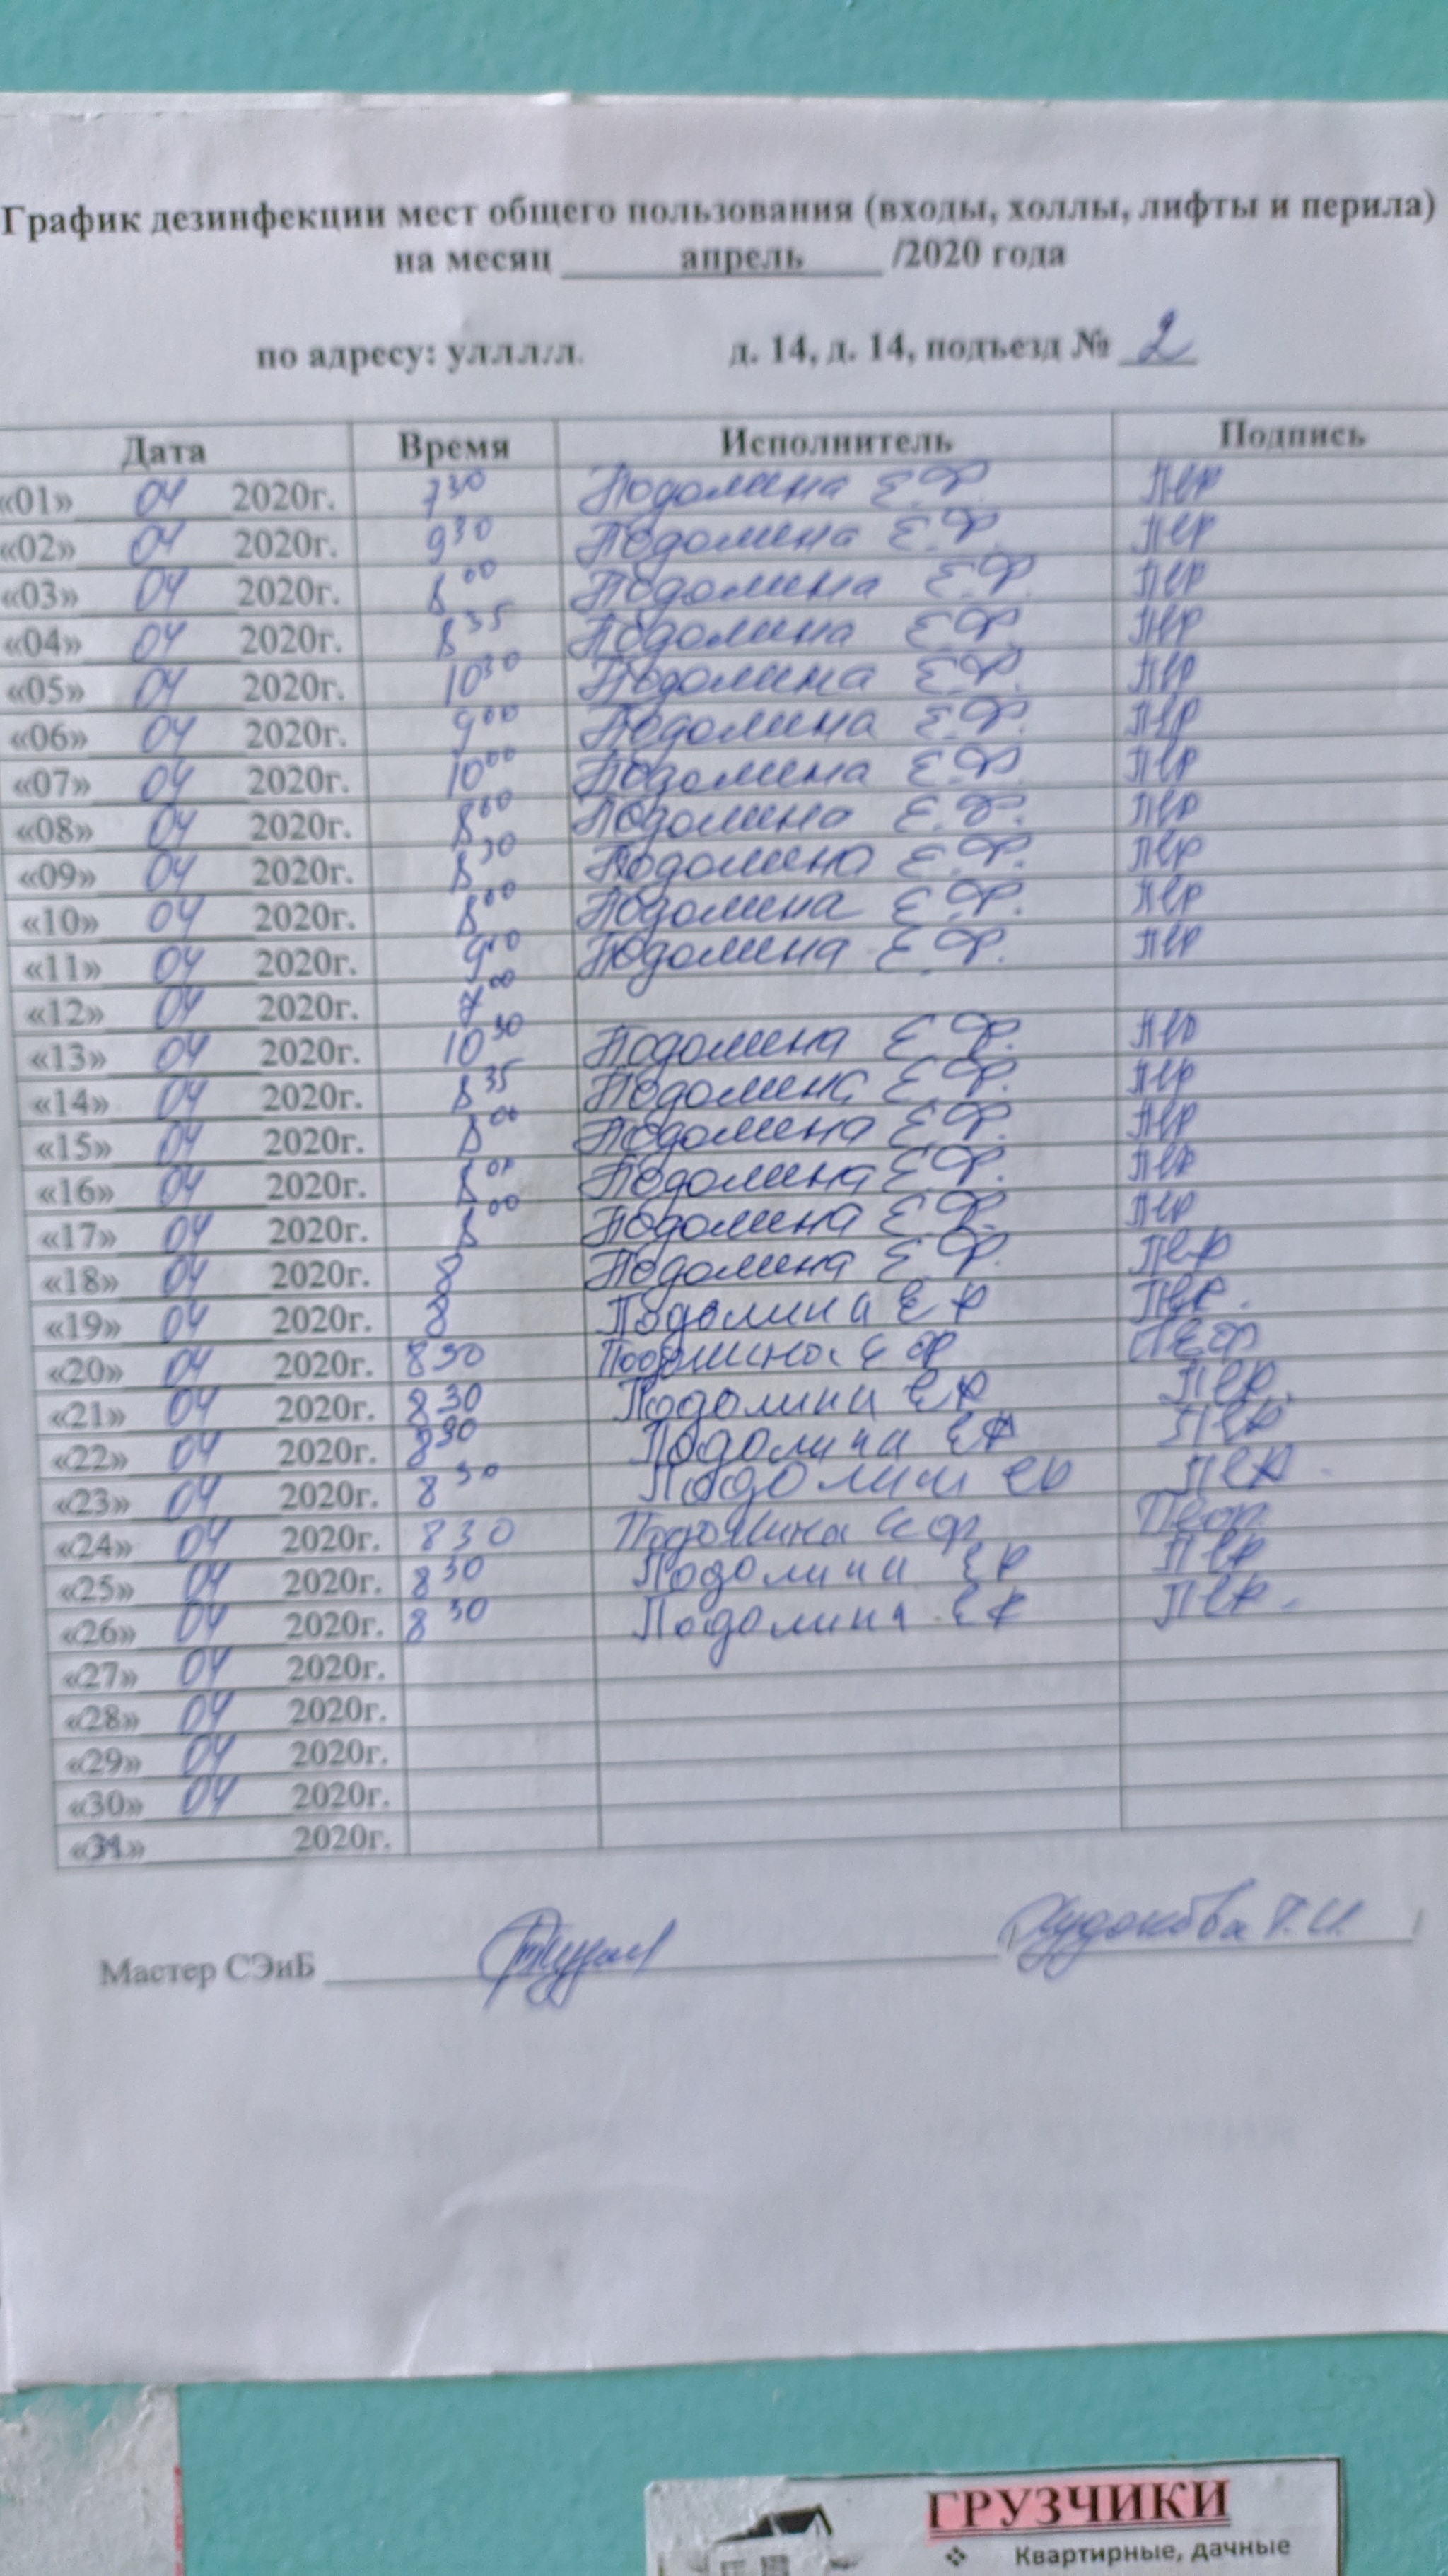 График дезинфекции мест общего пользования (входы, холлы, лифты и перила)
на месяц апрель /2020 года
по адресу: уллл/л. д. 14, д. 14, подъезд № 2
Дата Время Исполнитель Подпись
«01» 04 2020г. 7 30 Подолина Е.Ф. ПЕФ
«02» 04 2020г. 9 30 Подолина Е.Ф. ПЕФ
«03» 04 2020г. 8 00 Подолина Е.Ф. ПЕФ
«04» 04 2020г. 8 35 Подолина Е.Ф. ПЕФ
«05» 04 2020г. 10 30 Подолина Е.Ф. ПЕФ
«06» 04 2020г. 9 00 Подолина Е.Ф. ПЕФ
«07» 04 2020г. 10 00 Подолина Е.Ф. ПЕФ
«08» 04 2020г. 8 00 Подолина Е.Ф. ПЕФ
«09» 04 2020г. 8 30 Подолина Е.Ф. ПЕФ
«10» 04 2020г. 8 00 Подолина Е.Ф. ПЕФ
«11» 04 2020г. 9 00 Подолина Е.Ф. ПЕФ
«12» 04 2020г. 7 00
«13» 04 2020г. 10 30 Подолина Е.Ф. ПЕФ
«14» 04 2020г. 8 35 Подолина Е.Ф. ПЕФ
«15» 04 2020г. 8 00 Подолина Е.Ф. ПЕФ
«16» 04 2020г. 8 00 Подолина Е.Ф. ПЕФ
«17» 04 2020г. 8 00 Подолина Е.Ф. ПЕФ
«18» 04 2020г. 8 Подолина Е.Ф. ПЕФ
«19» 04 2020г. 8 Подолина Е Ф ПЕФ.
«20» 04 2020г. 8 30 Подолина Е Ф ПЕФ
«21» 04 2020г. 8 30 Подолина Е Ф ПЕФ.
«22» 04 2020г. 8 30 Подолина Е Ф ПЕФ
«23» 04 2020г. 8 30 Подолина Е Ф ПЕФ
«24» 04 2020г. 8 30 Подолина Е Ф ПЕФ
«25» 04 2020г. 8 30 Подолина Е Ф ПЕФ
«26» 04 2020г. 8 30 Подолина Е Ф ПЕФ.
«27» 04 2020г.
«28» 04 2020г.
«29» 04 2020г.
«30» 04 2020г.
«31» 2020г.
Мастер СЭиБ Худокова Т.И.
ГРУЗЧИКИ
❖ Квартирные, дачные